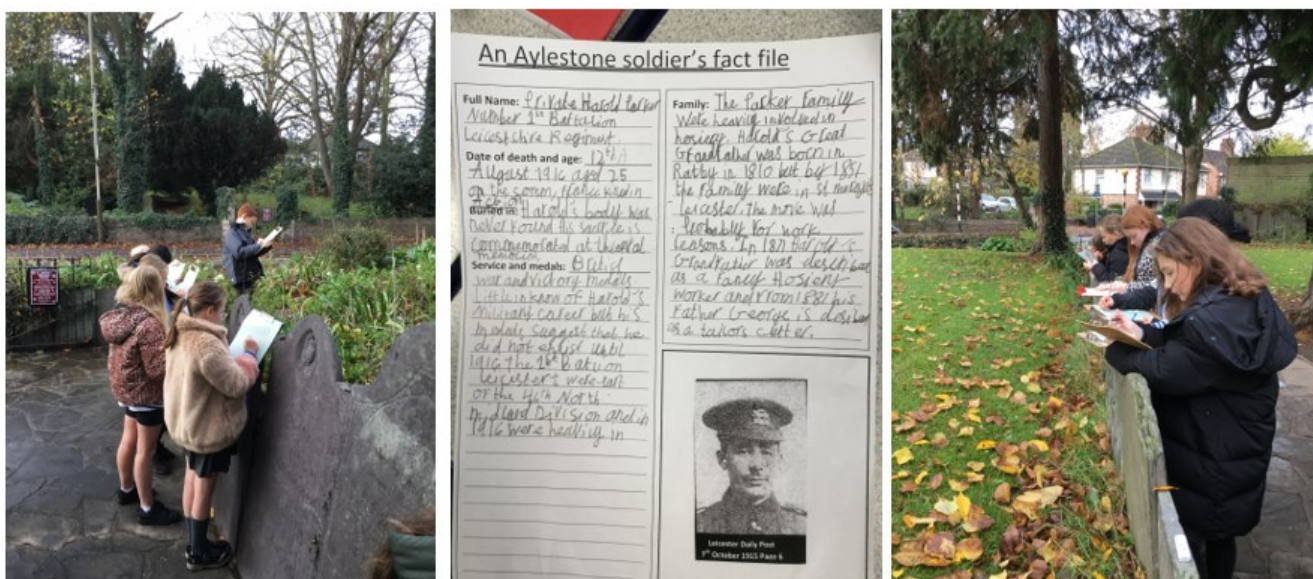 An Aylestone soldier's fact file
Full Name: Private Harold Parker
Number 1st Battation
Leicestshire Regiment.
Date of death and age: 12th
August 1916 aged 25
on the somm, France killed in
Action
Buried in: Harold's body was
never found his sacrifice is
commemorated at thiepval
memorial
Service and medals: British
war and victory medals
little in know of Harold's
military career but his
medals suggest that he
did not enlist until
1916 the 1st Batuon
Leicester's were
of the North
midland Division and in
1916 were heavily in
Family: The Parker Family
were heavily involved in
hosiery Harold's Great
Grandfather was born in
Ratby in 1810 but by 1851
the family were in St
Leicester. the move was
probably for work
reasons. In 1871 Harold's
Grandfather was
as a fancy Hosiery
worker and from 1881 his
Father George is
as a tailors cutter.
Leicester Daily Post
7th October 1915 Page 6